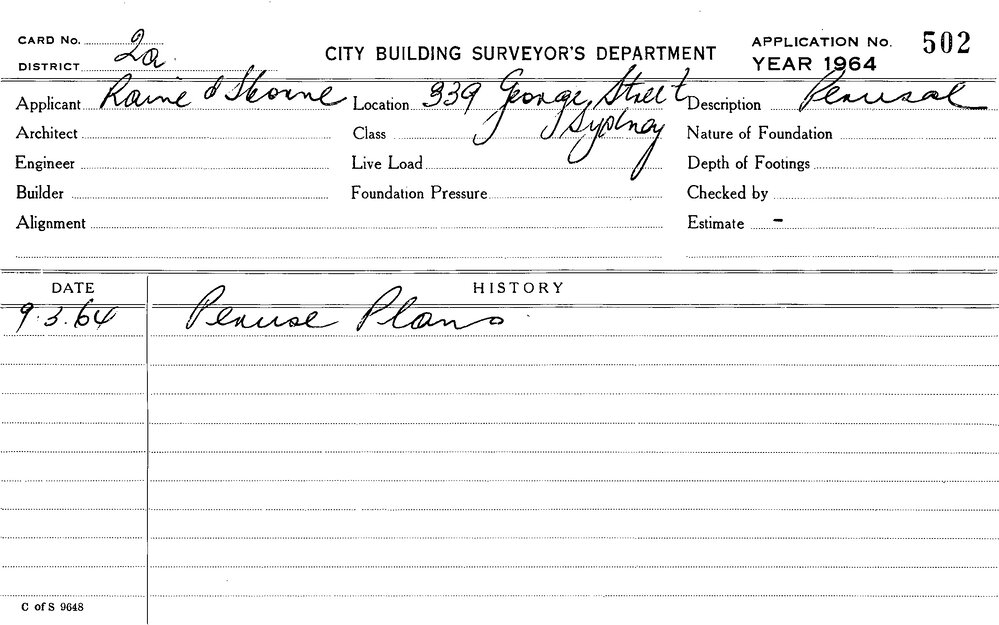 CARD No.
CITY BUILDING SURVEYOR'S DEPARTMENT
APPLICATION No. 502
DISTRICT 2a
YEAR 1964
Applicant Raine & Horne Location 339 George Street Description Perusal
Architect Class Sydney Nature of Foundation
Engineer Live Load Depth of Footings
Builder Foundation Pressure Checked by
Alignment Estimate -
DATE HISTORY
9.3.64 Peruse Plans
C of S 9648